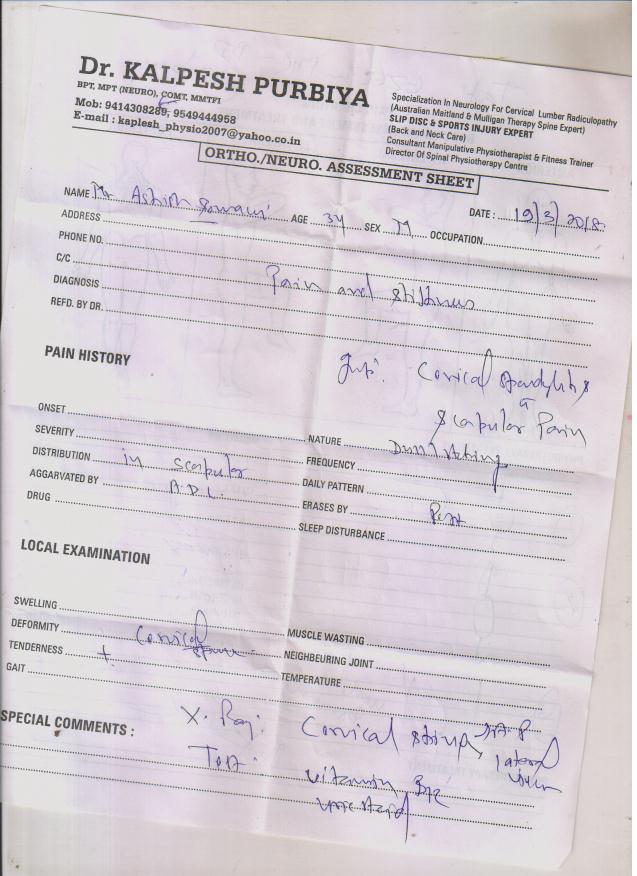 Dr. KALPESH PURBIYA
BPT, MPT (NEURO), COMT, MMTFI
Mob: 9414308289, 9549444958
E-mail : kaplesh_physio2007@yahoo.co.in
Specialization In Neurology For Cervical Lumber Radiculopathy
(Australian Maitland & Mulligan Therapy Spine Expert)
SLIP DISC & SPORTS INJURY EXPERT
(Back and Neck Care)
Consultant Manipulative Physiotherapist & Fitness Trainer
Director Of Spinal Physiotherapy Centre
ORTHO./NEURO. ASSESSMENT SHEET
DATE : 19/3/2018
NAME Mr Ashish AGE 34 SEX M OCCUPATION
ADDRESS
PHONE NO.
C/C Pain and stiffness
DIAGNOSIS
REFD. BY DR.
PAIN HISTORY
Cervical Spondylitis
Scapular Pain
ONSET
NATURE Dull Aching
SEVERITY
FREQUENCY
DISTRIBUTION in scapular
DAILY PATTERN
AGGARVATED BY A.D.L.
ERASES BY Rest
DRUG
SLEEP DISTURBANCE
LOCAL EXAMINATION
SWELLING
MUSCLE WASTING
DEFORMITY Cervical
NEIGHBEURING JOINT
TENDERNESS +
TEMPERATURE
GAIT
SPECIAL COMMENTS :
X. Ray: Cervical spine A.P
lateral view
Test: Vitamin B12
Uric Acid